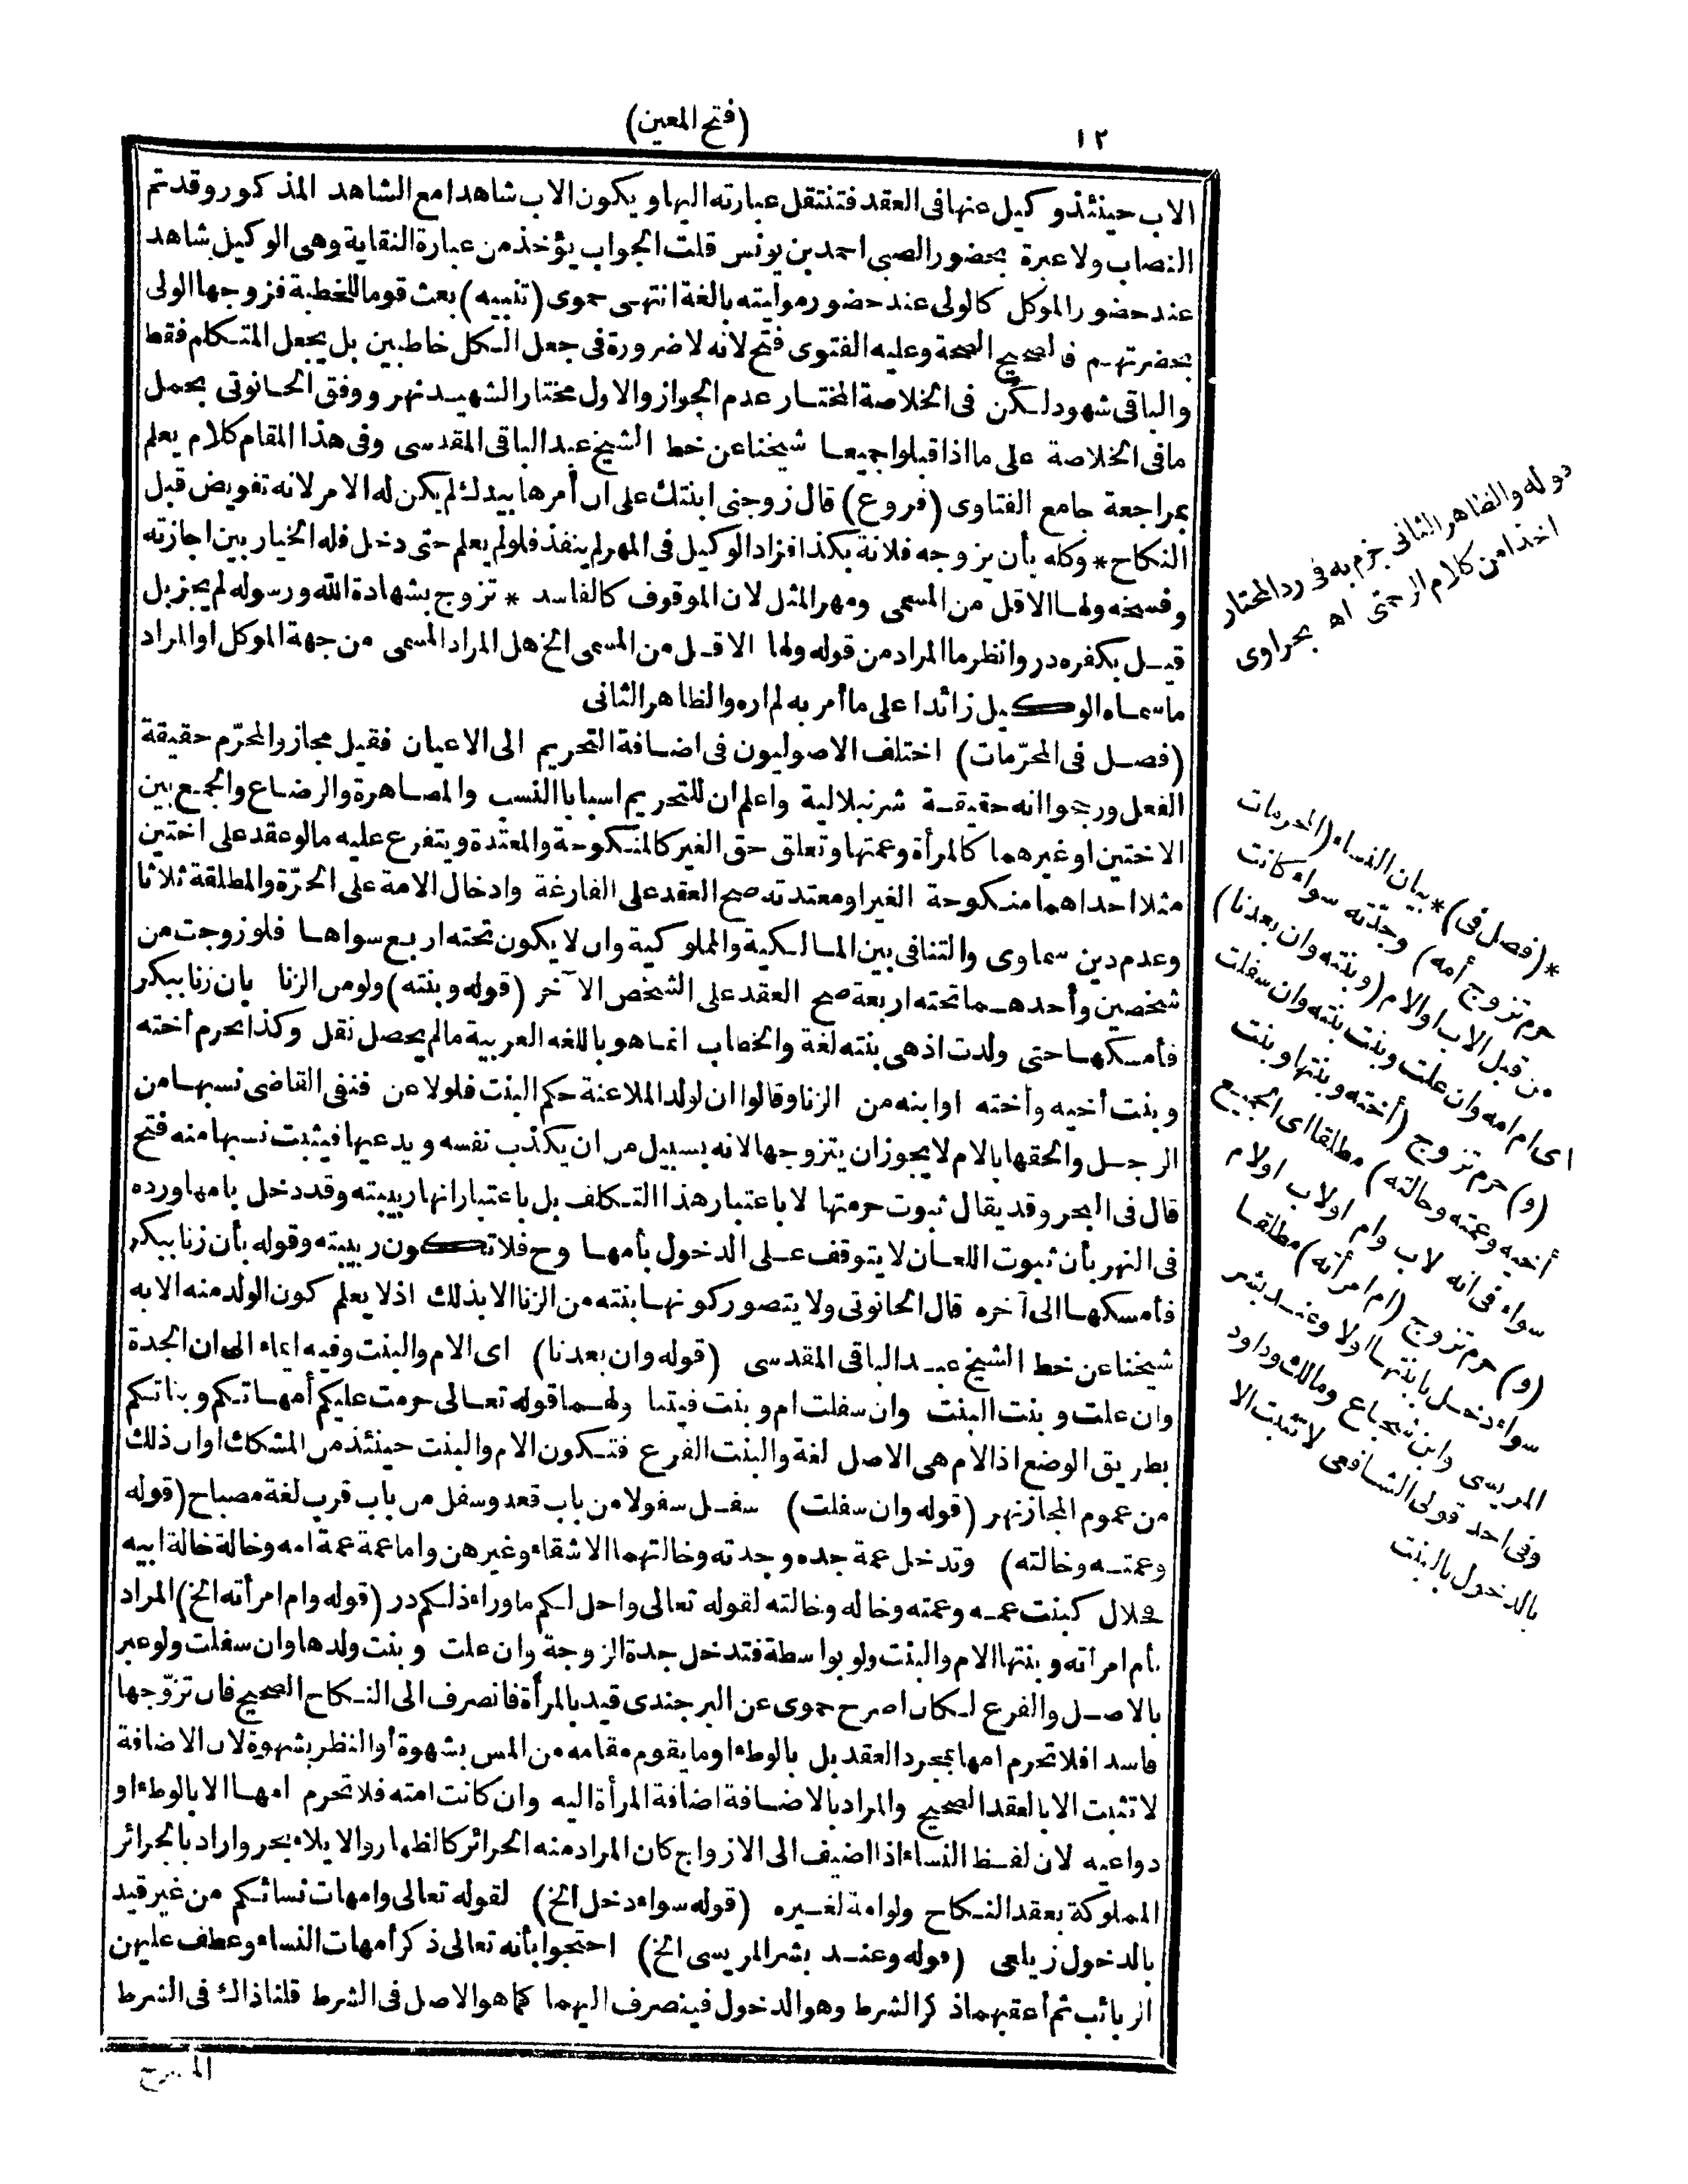 ١٢
(فتح المعين)
الاب حينئذ وكيل عنها فى العقد فتنتقل عبارته اليها ويكون الاب شاهدا مع الشاهد المذكور وقد تم
النصاب ولا عبرة بحضور الصبى احمد بن يونس قلت الجواب يؤخذ من عبارة النقاية وهى الوكيل شاهد
عند حضور الموكل كالولى عند حضور موليته بالغة انتهى حموى (تنبيه) بعث قوما للخطبة فزوجها الولى
بحضرتهم فالصحيح الصحة وعليه الفتوى فتح لانه لا ضرورة فى جعل الكل خاطبين بل يجعل المتكلم فقط
والباقى شهود لكن فى الخلاصة المختار عدم الجواز والاول مختار الشهيد نهر ووفق الحانوتى بحمل
مافى الخلاصة على ما اذا قبلوا جميعا شيخنا عن خط الشيخ عبد الباقى المقدسى وفى هذا المقام كلام يعلم
بمراجعة جامع الفتاوى (فروع) قال زوجنى ابنتك على ان أمرها بيدك لم يكن له الامر لانه تفويض قبل
النكاح * وكله بأن يزوجه فلانة بكذا فزاد الوكيل فى المهر لم ينفذ فلو لم يعلم حتى دخل فله الخيار بين اجازته
وفسخه ولها الاقل من المسمى ومهر المثل لان الموقوف كالفاسد * تزوج بشهادة الله ورسوله لم يجز بل
قيل يكفر در وانظر ما المراد من قوله ولها الاقل من المسمى الخ هل المراد المسمى من جهة الموكل او المراد
ماسماه الوكيل زائدا على ما أمر به لم اره والظاهر الثانى
(فصل فى المحرّمات) اختلف الاصوليون فى اضافة التحريم الى الاعيان فقيل مجاز والمحرّم حقيقة
الفعل ورجحوا انه حقيقة شرنبلالية واعلم ان للتحريم اسبابا النسب والمصاهرة والرضاع والجمع بين
الاختين او غيرهما كالمرأة وعمتها وتعلق حق الغير كالمنكوحة والمعتدة ويتفرع عليه مالو عقد على اختين
مثلا احداهما منكوحة الغير او معتدته صح العقد على الفارغة وادخال الامة على الحرّة والمطلقة ثلاثا
وعدم دين سماوى والتنافى بين المالكية والمملوكية وان لا يكون تحته اربع سواها فلو زوجت من
شخصين وأحدهما تحته اربعة صح العقد على الشخص الآخر (قوله وبنته) ولو من الزنا بان زنا ببكر
فأمسكها حتى ولدت اذ هى بنته لغة والخطاب انما هو باللغه العربية مالم يحصل نقل وكذا يحرم أخته
وبنت أخيه وأخته او ابنه من الزنا وقالوا ان لولد الملاعنة حكم البنت فلو لاعن فنفى القاضى نسبها من
الرجل والحقها بالام لا يجوز ان يتزوجها لانه بسبيل من ان يكذب نفسه ويدعيها فيثبت نسبها منه فتح
قال فى البحر وقد يقال ثبوت حرمتها لا باعتبار هذا التكلف بل باعتبار انها ربيبته وقد دخل بامها ورده
فى النهر بأن ثبوت اللعان لا يتوقف على الدخول بأمها وح فلا تكون ربيبته وقوله بأن زنا ببكر
فأمسكها الى آخره قال الحانوتى ولا يتصور كونها بنته من الزنا الا بذلك اذ لا يعلم كون الولد منه الا به
شيخنا عن خط الشيخ عبد الباقى المقدسى (قوله وان بعدنا) اى الام والبنت وفيه ايماء الى ان الجدة
وان علت وبنت البنت وان سفلت ام وبنت فيتناولهما قوله تعالى حرمت عليكم أمهاتكم وبناتكم
بطريق الوضع اذ الام هى الاصل لغة والبنت الفرع فتكون الام والبنت حينئذ من المشكك او ان ذلك
من عموم المجاز نهر (قوله وان سفلت) سفل سفولا من باب قعد وسفل من باب قرب لغة مصباح (قوله
وعمته وخالته) وتدخل عمة جده وجدته وخالتهما الاشقاء وغيرهن واما عمة عمة امه وخالة خالة ابيه
حلال كبنت عمه وعمته وخاله وخالته لقوله تعالى واحل لكم ما وراء ذلكم در (قوله وام امرأته الخ) المراد
بأم امرأته وبنتها الام والبنت ولو بواسطة فتدخل جدة الزوجة وان علت وبنت ولدها وان سفلت ولو عبر
بالاصل والفرع لكان اصرح حموى عن البرجندى قيد بالمرأة فانصرف الى النكاح الصحيح فان تزوّجها
فاسدا فلا تحرم امها بمجرد العقد بل بالوطء او ما يقوم مقامه من المس بشهوة أو النظر بشهوة لان الاضافة
لا تثبت الا بالعقد الصحيح والمراد بالاضافة اضافة المرأة اليه وان كانت امته فلا تحرم امها الا بالوطء او
دواعيه لان لفظ النساء اذا اضيف الى الازواج كان المراد منه الحرائر كالظهار والايلاء بحر واراد بالحرائر
المملوكة بعقد النكاح ولو امة لغيره (قوله سواء دخل الخ) لقوله تعالى وامهات نسائكم من غير قيد
بالدخول زيلعى (قوله وعند بشر المريسى الخ) احتجوا بأنه تعالى ذكر أمهات النساء وعطف عليهن
الربائب ثم أعقبهما ذكر الشرط وهو الدخول فينصرف اليهما كما هو الاصل فى الشرط قلنا ذاك فى الشرط
قوله والظاهر الثانى جزم به فى رد المحتار
اخذا من كلام الرحمتى اه بحراوى
*(فصل فى)* بيان النساء (المحرمات
حرم تزوج أمه) وجدّته سواء كانت
من قبل الاب او الام (وبنته وان بعدنا)
اى ام امه وان علت وبنت بنته وان سفلت
(و) حرم تزوج (أخته وبنتها وبنت
أخيه وعمته وخالته) مطلقا اى الجميع
سواء فى انه لاب وام او لاب او لام
(و) حرم تزوج (ام امرأته) مطلقا
سواء دخل بابنتها اولا وعند بشر
المريسى وابن شجاع ومالك وداود
وفى احد قولى الشافعى لا تثبت الا
بالدخول بالبنت